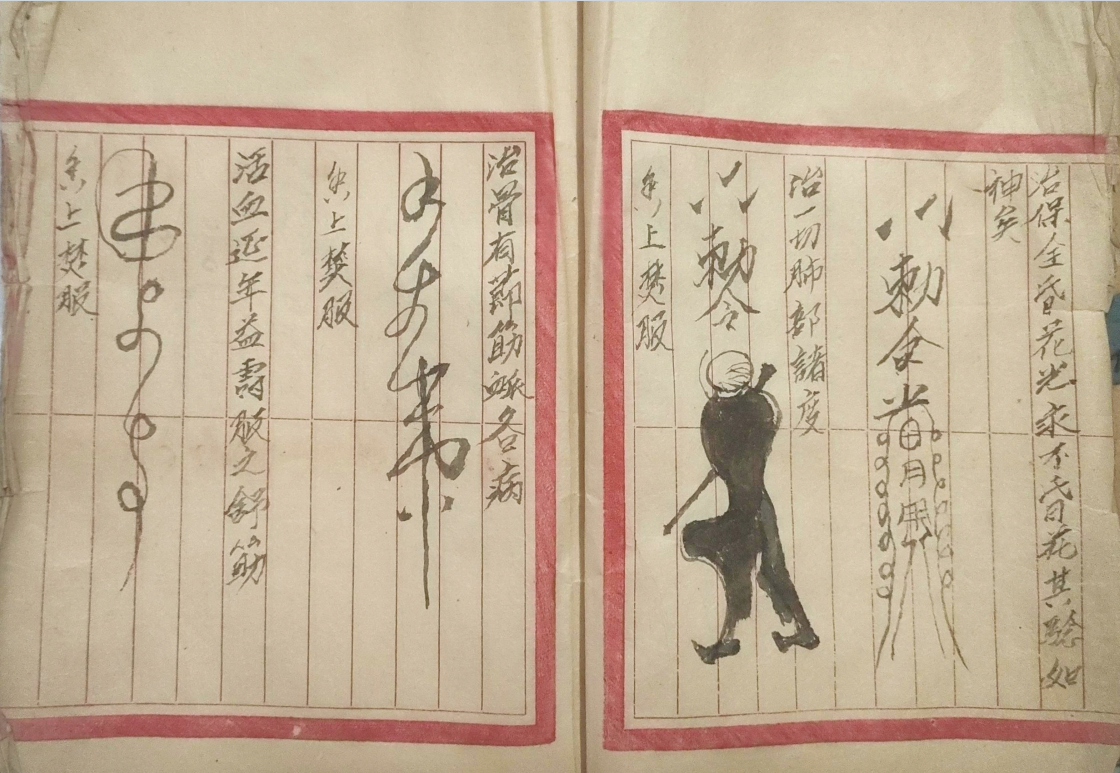 治保全昏花光永不昏花其驗如
神矣
敕令
治一切肺部諸疫
敕令
上焚服
治骨有節筋脈各病
上焚服
活血延年益壽服之舒筋
上焚服